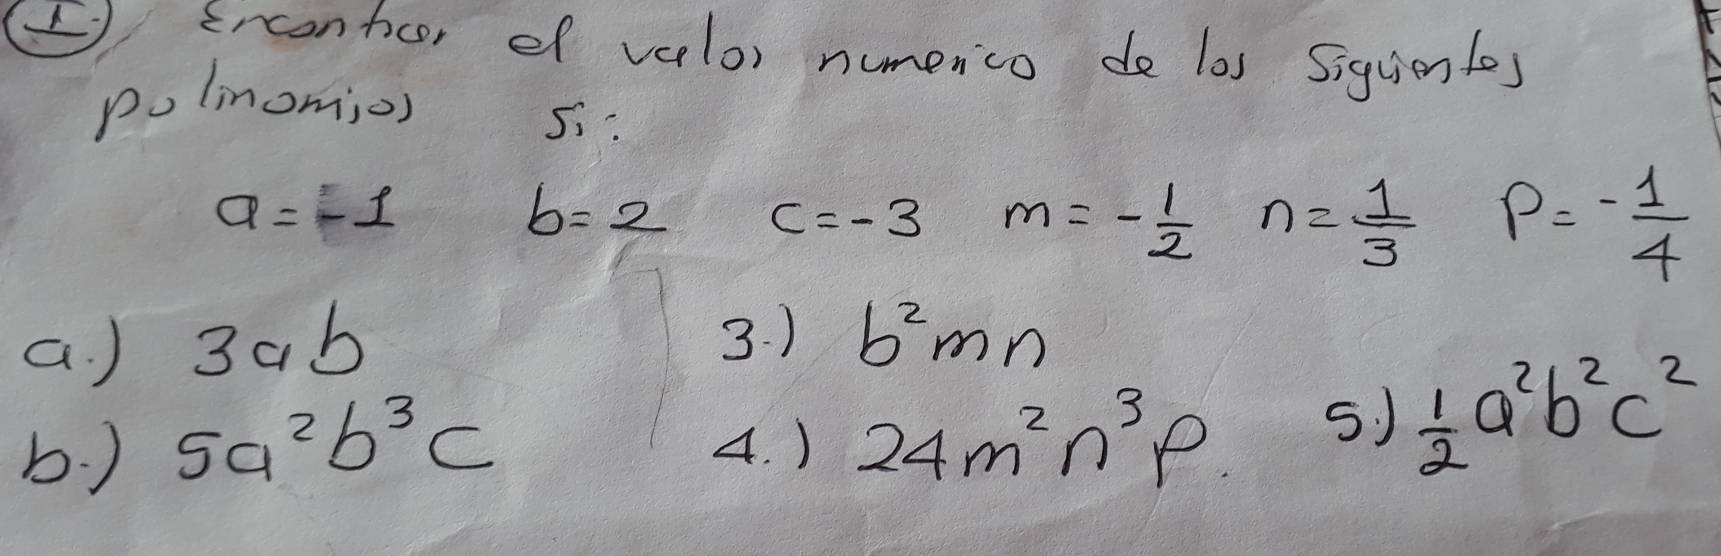 I.) Encontrar el valor numerico de los siguientes
polinomios si:
a = -1 b = 2 c = -3 m = -1/2 n = 1/3 P = -1/4
a.) 3ab 3.) b²mn
b.) 5a²b³c 4.) 24m²n³p. 5.) 1/2 a²b²c²